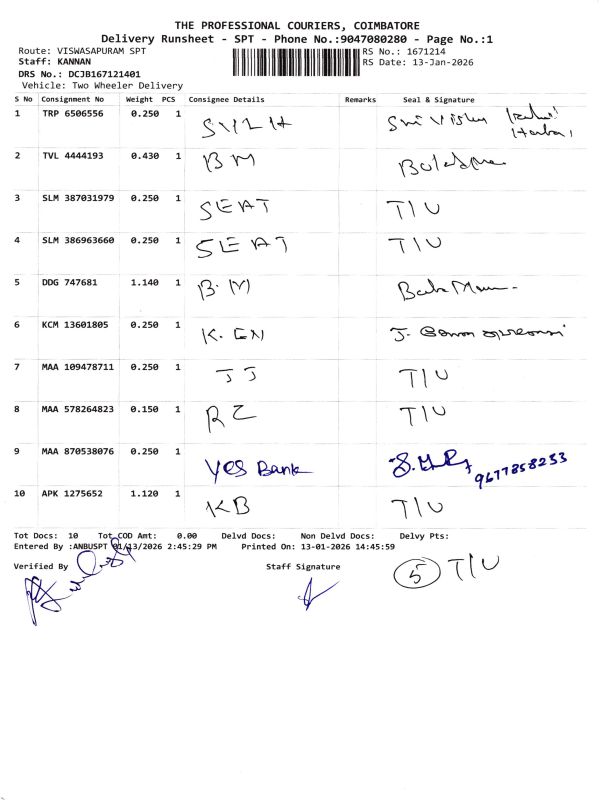 THE PROFESSIONAL COURIERS, COIMBATORE
Delivery Runsheet - SPT - Phone No.:9047080280 - Page No.:1
Route: VISWASAPURAM SPT
RS No.: 1671214
Staff: KANNAN
RS Date: 13-Jan-2026
DRS No.: DCJB167121401
Vehicle: Two Wheeler Delivery
S No Consignment No Weight PCS Consignee Details Remarks Seal & Signature
1 TRP 6506556 0.250 1 Sri Vishu
2 TVL 4444193 0.430 1 BM
3 SLM 387031979 0.250 1 SEAT T/U
4 SLM 386963660 0.250 1 SEAT T/U
5 DDG 747681 1.140 1 B.M
6 KCM 13601805 0.250 1 K. GN J.
7 MAA 109478711 0.250 1 JJ T/U
8 MAA 578264823 0.150 1 RZ T/U
9 MAA 870538076 0.250 1 YES Bank 9677858253
10 APK 1275652 1.120 1 KB T/U
Tot Docs: 10 Tot COD Amt: 0.00 Delvd Docs: Non Delvd Docs: Delvy Pts:
Entered By :ANBUSPT 01/13/2026 2:45:29 PM Printed On: 13-01-2026 14:45:59
Verified By Staff Signature
5 T/U